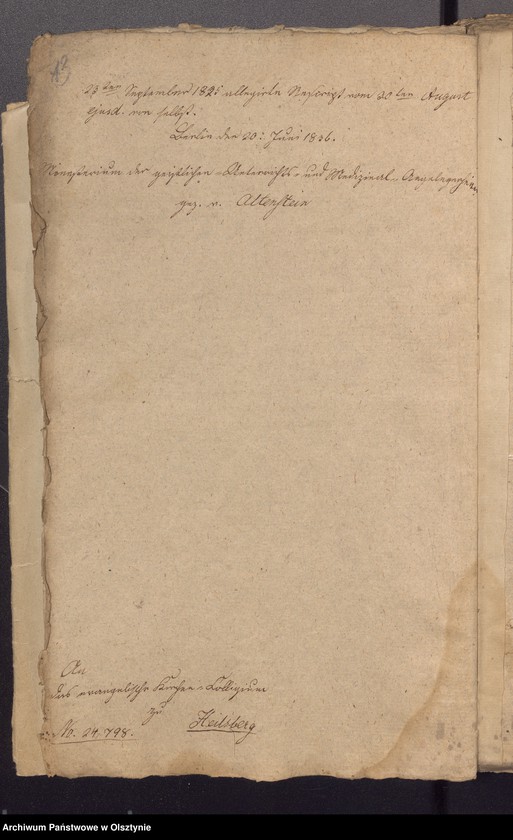 23ten September 1825 allegirte Rescript vom 20ten August
ejusd. von selbst.
Berlin den 20: Juni 1836.
Ministerium der geistlichen- Unterrichts- und Medizinal-Angelegenheiten
gez. v. Altenstein
An
das evangelische Kirchen-Collegium
zu Heilsberg
No. 24.798.
Archiwum Państwowe w Olsztynie